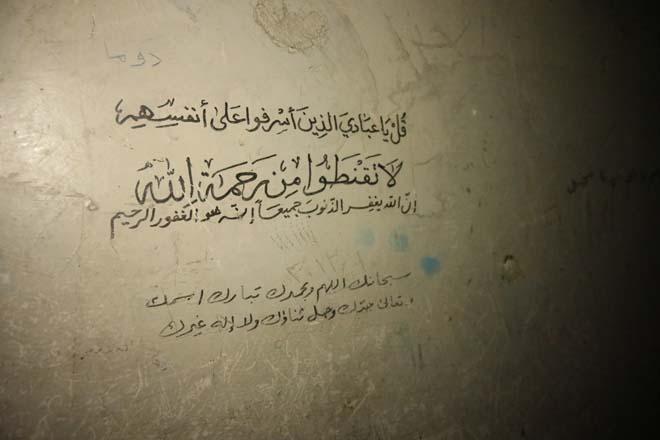 دوما
قُلْ يَا عِبَادِيَ الَّذِينَ أَسْرَفُوا عَلَى أَنْفُسِهِمْ
لَا تَقْنَطُوا مِنْ رَحْمَةِ اللَّهِ
إنّ الله يغفر الذنوب جميعاً إنّه هو الغفور الرحيم
سبحانك اللهم وبحمدك تبارك اسمك
وتعالى جدك وجل ثناؤك ولا إله غيرك